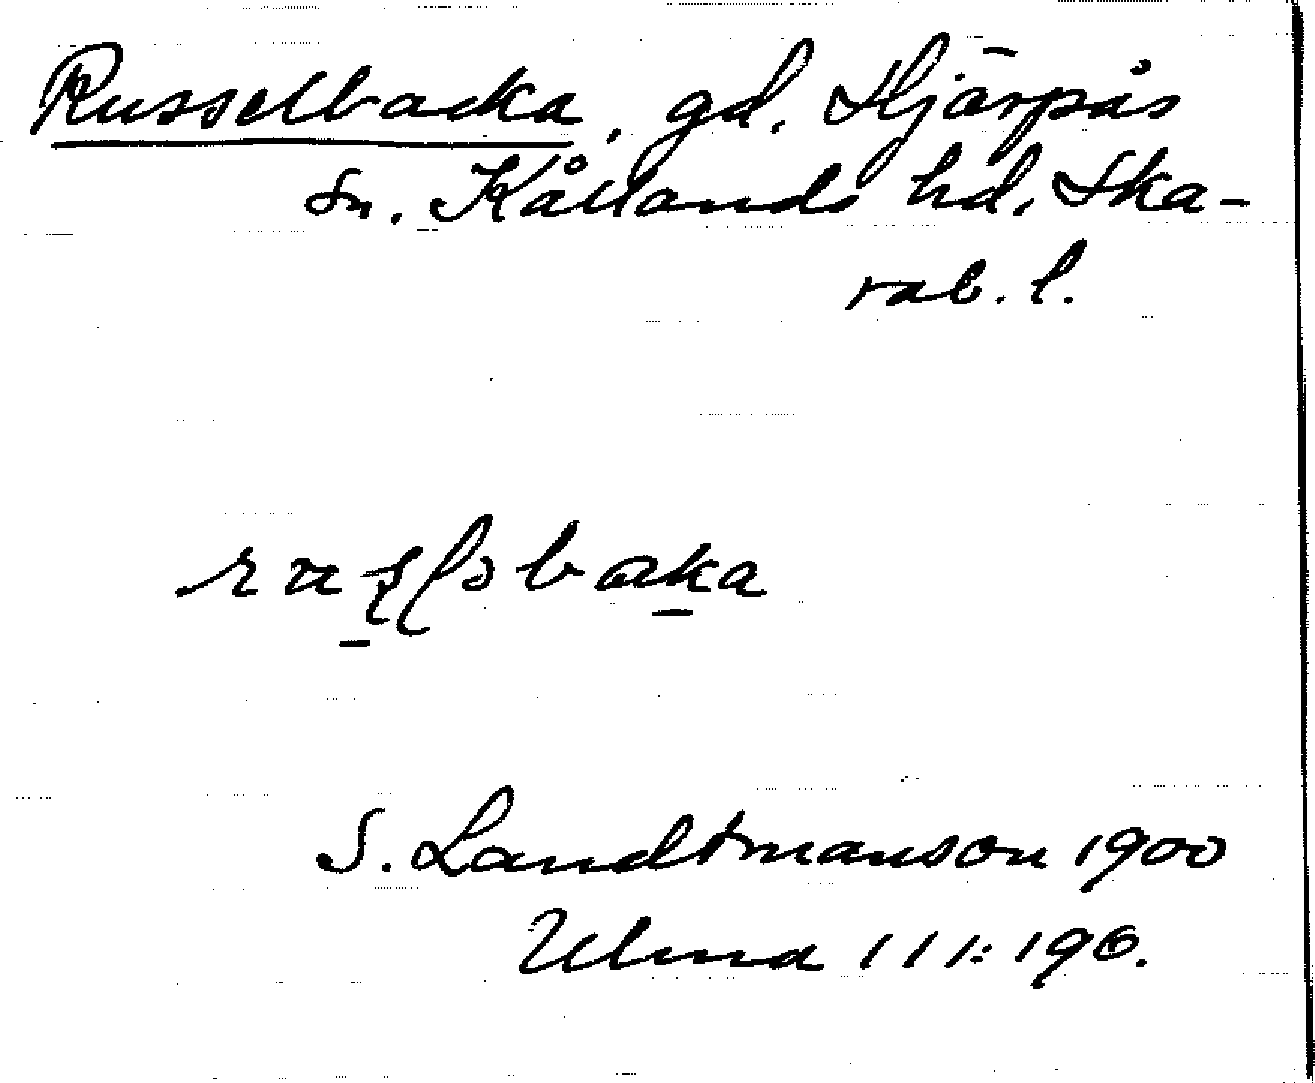 Russelbacka, gd. Hjärpås
sn. Kållands hd. Ska-
rab. l.
S. Landtmanson 1900
Ulma 111:196.